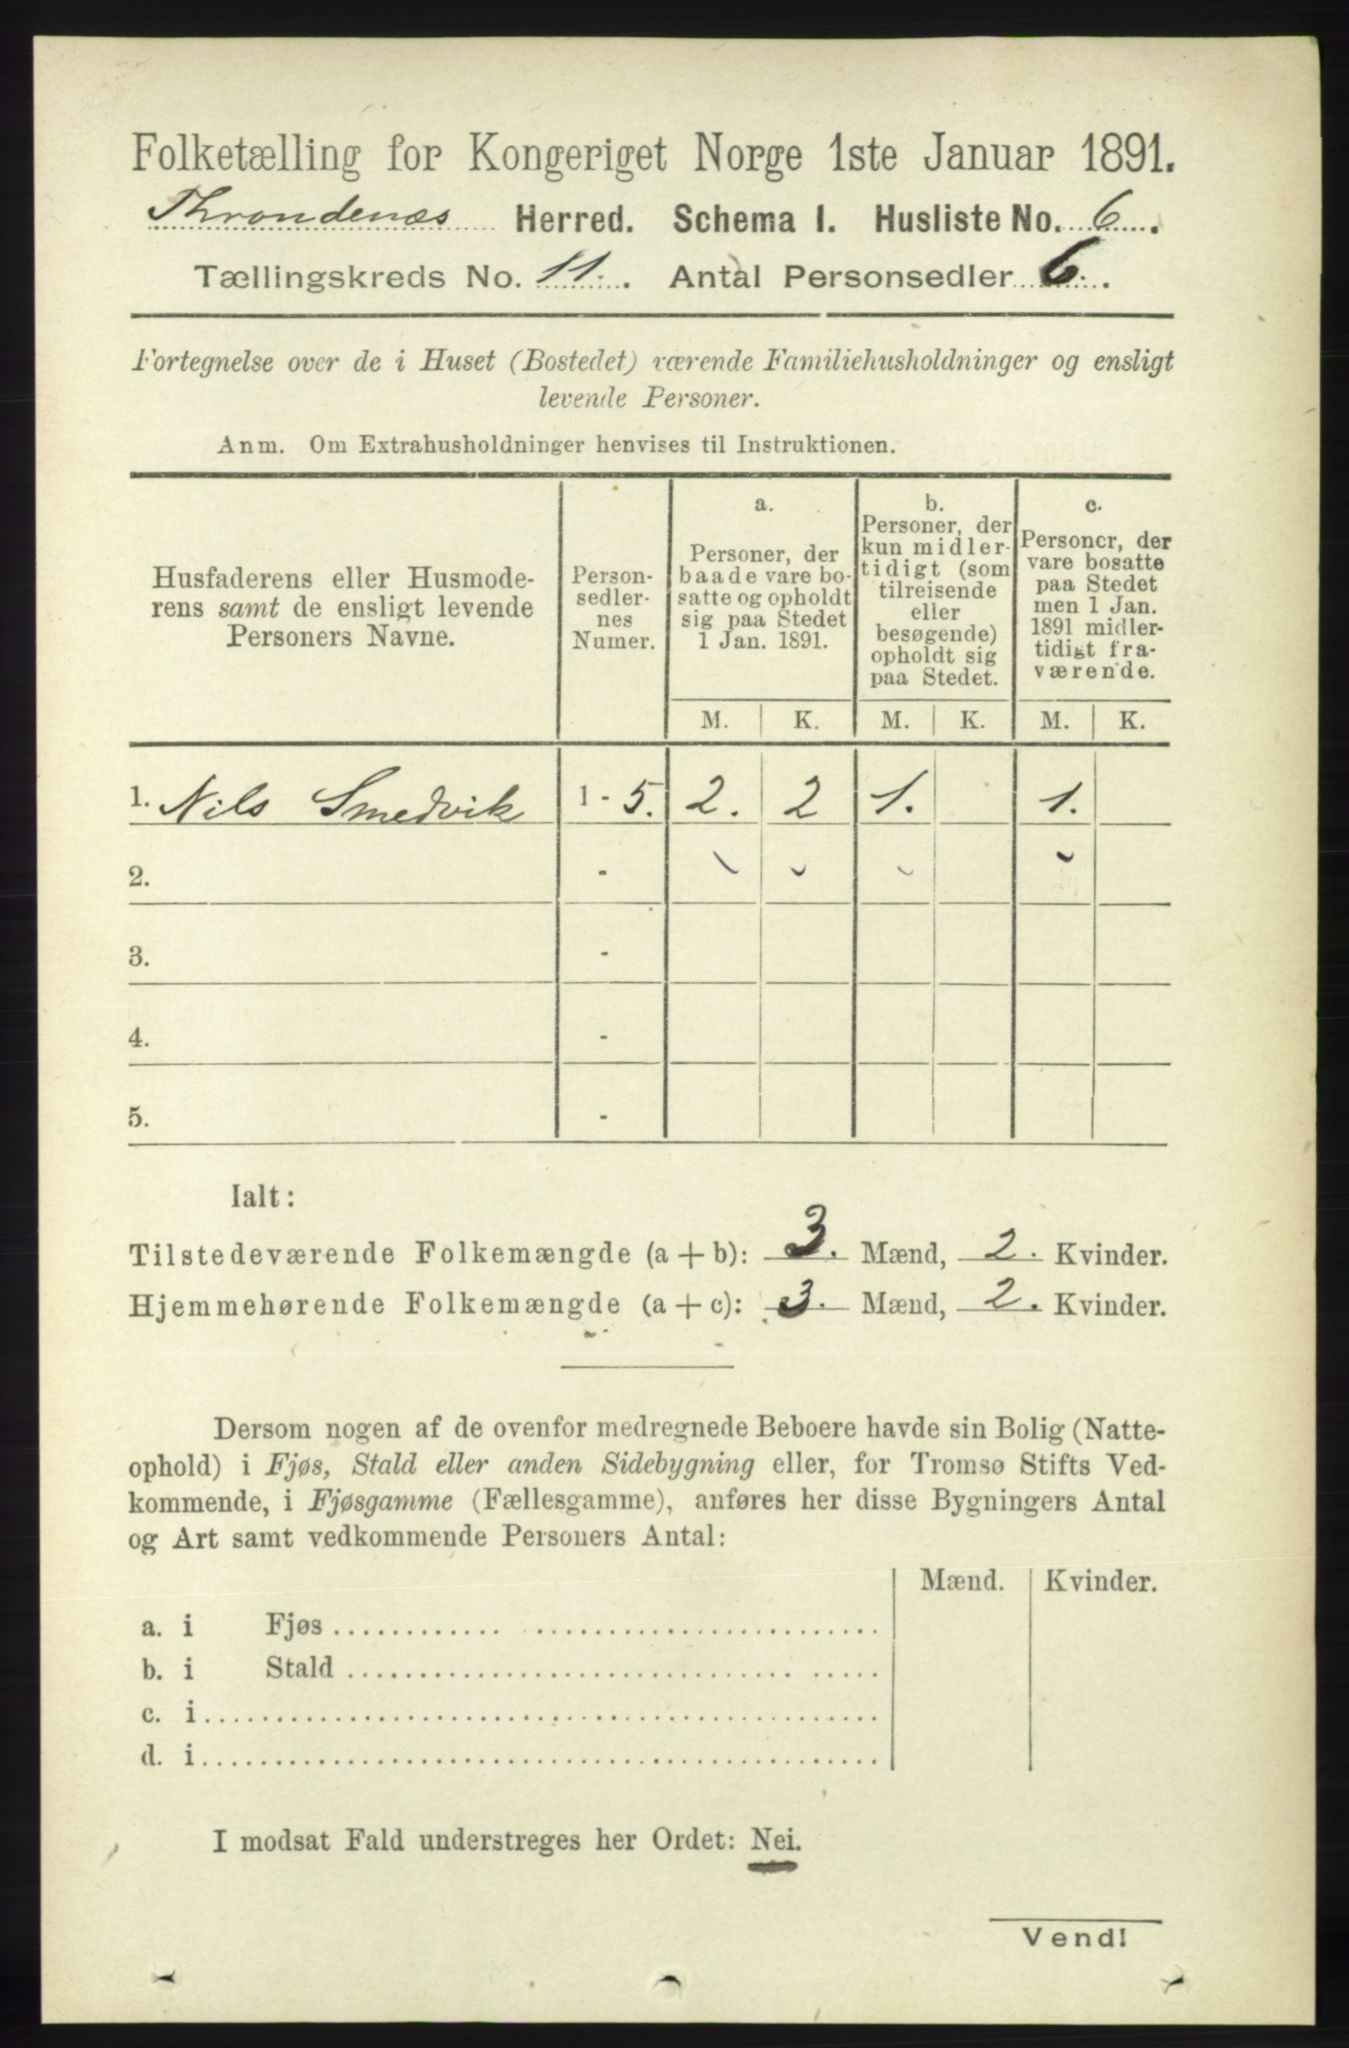 Folketælling for Kongeriget Norge 1ste Januar 1891.
Throndenæs Herred. Schema I. Husliste No. 6.
Tællingskreds No. 11. Antal Personsedler 6.
Fortegnelse over de i Huset (Bostedet) værende Familiehusholdninger og ensligt
levende Personer.
Anm. Om Extrahusholdninger henvises til Instruktionen.
Husfaderens eller Husmode-
rens samt de ensligt levende
Personers Navne.
Person-
sedler-
nes
Numer.
a.
Personer, der
baade vare bo-
satte og opholdt
sig paa Stedet
1 Jan. 1891.
b.
Personer, der
kun midler-
tidigt (som
tilreisende
eller
besøgende)
opholdt sig
paa Stedet.
c.
Personer, der
vare bosatte
paa Stedet
men 1 Jan.
1891 midler-
tidigt fra-
værende.
M. K. M. K. M. K.
1. Nils Smedvik 1 - 5. 2. 2 1. 1.
2. -
3. -
4. -
5. -
Ialt:
Tilstedeværende Folkemængde (a + b): 3. Mænd, 2. Kvinder.
Hjemmehørende Folkemængde (a + c): 3. Mænd, 2. Kvinder.
Dersom nogen af de ovenfor medregnede Beboere havde sin Bolig (Natte-
ophold) i Fjøs, Stald eller anden Sidebygning eller, for Tromsø Stifts Ved-
kommende, i Fjøsgamme (Fællesgamme), anføres her disse Bygningers Antal
og Art samt vedkommende Personers Antal:
Mænd. Kvinder.
a. i Fjøs
b. i Stald
c. i
d. i
I modsat Fald understreges her Ordet: Nei.
Vend!